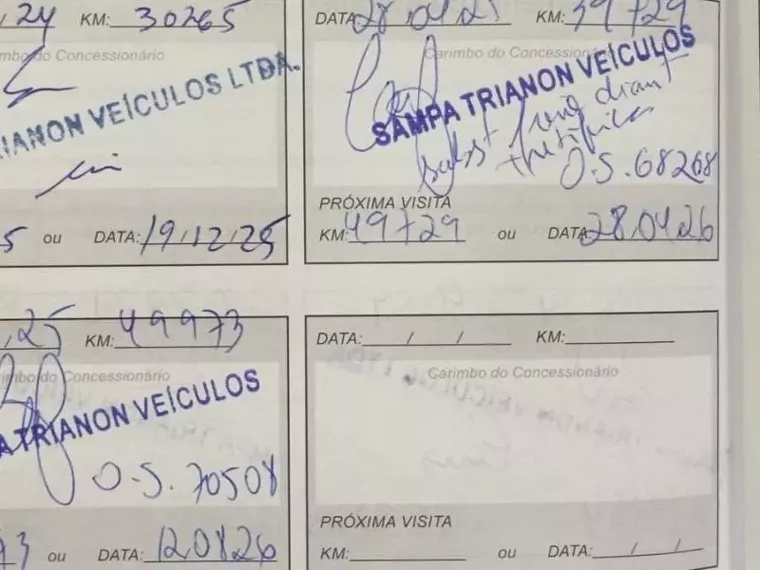 24 KM: 30265
Carimbo do Concessionário
TRIANON VEÍCULOS LTDA.
5 ou DATA: 19,12,25
DATA: 28.04.25 KM: 39729
Carimbo do Concessionário
SAMPA TRIANON VEÍCULOS
subst
O.S. 68268
PRÓXIMA VISITA
KM: 49729 ou DATA: 28.04.26
25 KM: 49973
Carimbo do Concessionário
TRIANON VEÍCULOS
O.S. 70508
73 ou DATA: 12.08.26
DATA: / / KM:
Carimbo do Concessionário
PRÓXIMA VISITA
KM: ou DATA: / /